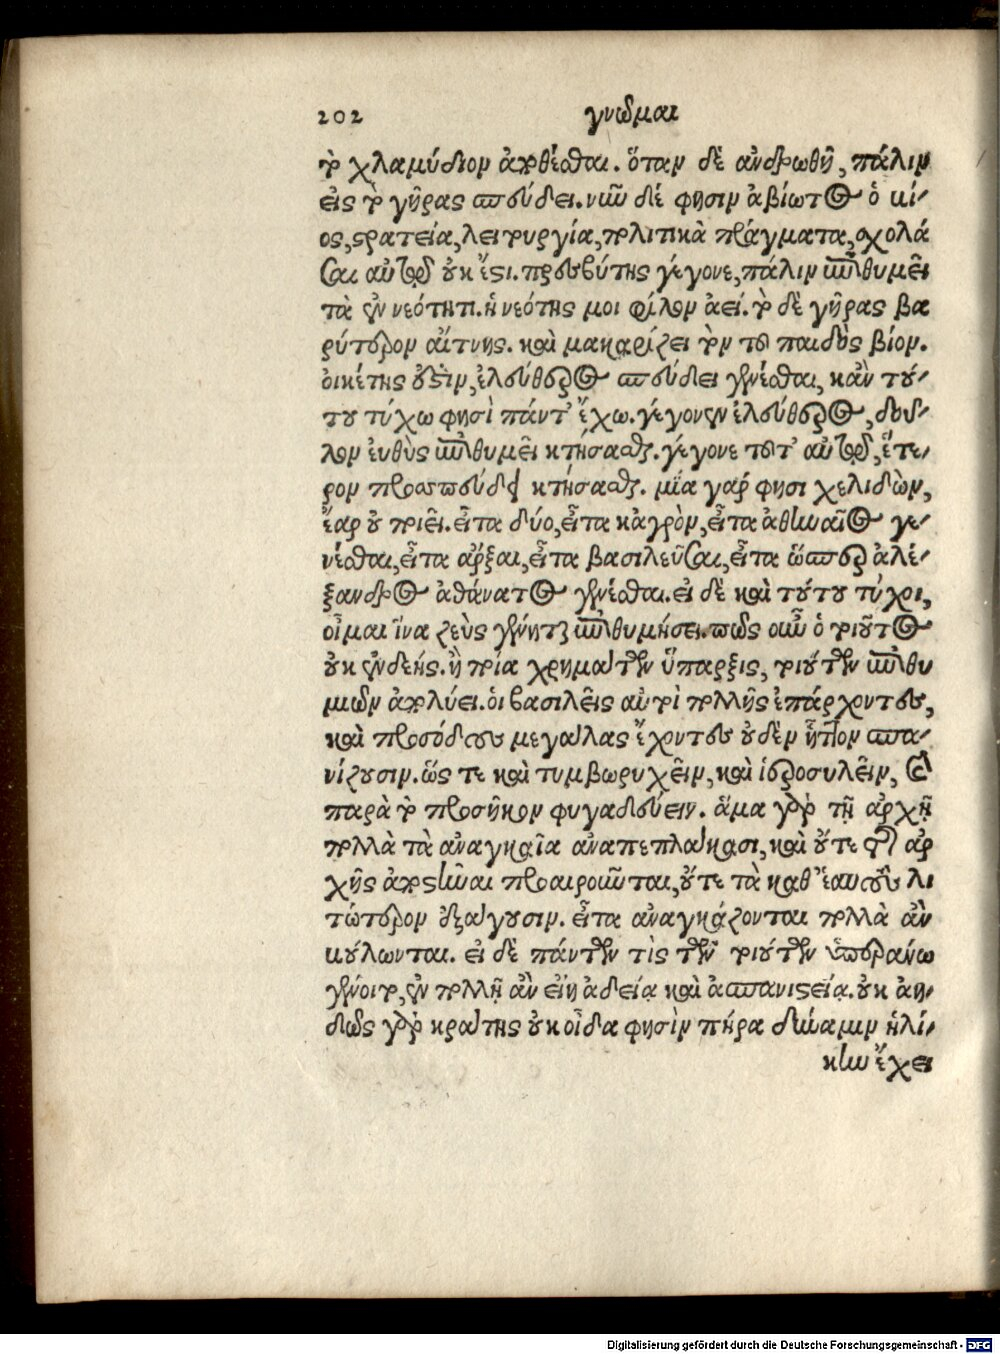 202 γνῶμαι
τὸ χλαμύδιον ἄχθεσθαι. ὅταν δὲ ἀνδρωθῇ, πάλιν
εἰς τὸ γῆρας σπεύδει. νῦν δέ φησιν ἀβίωτος ὁ βί-
ος, στρατεία, λειτουργία, πολιτικὰ πράγματα, σχολά
σαι αὐτῷ οὐκ ἔστι. πρεσβύτης γέγονε, πάλιν ἐπιθυμεῖ
τὰ ἐν νεότητι. ἡ νεότης μοι φίλον ἀεί. τὸ δὲ γῆρας βα
ρύτερον αἴτνης. καὶ μακαρίζει τὸν τοῦ παιδὸς βίον.
οἰκέτης ἐστὶν, ἐλεύθερος σπεύδει γενέσθαι, κἂν τού-
του τύχω φησὶ πάντ’ ἔχω. γέγονεν ἐλεύθερος, δοῦ-
λον εὐθὺς ἐπιθυμεῖ κτήσασθαι. γέγονε τοῦτ’ αὐτῷ, ἕτε-
ρον προσπεύδει κτήσασθαι. μία γάρ φησι χελιδὼν,
ἔαρ οὐ ποιεῖ. εἶτα δύο, εἶτα κἀγρὸν, εἶτα ἀθηναῖος γε-
νέσθαι, εἶτα ἄρξαι, εἶτα βασιλεῦσαι, εἶτα ὥσπερ ἀλέ-
ξανδρος ἀθάνατος γενέσθαι. εἰ δὲ καὶ τούτου τύχοι,
οἶμαι ἵνα ζεὺς γένηται ἐπιθυμήσει. πῶς οὖν ὁ τοιοῦτος
οὐκ ἐνδεής. ἢ ποία χρημάτων ὕπαρξις, τοιούτων ἐπιθυ
μιῶν ἀπολύει. οἱ βασιλεῖς αὐτοὶ πολλῆς ἐπάρχοντες,
καὶ προσόδους μεγάλας ἔχοντες οὐδὲν ἧττον σπα-
νίζουσιν. ὥς τε καὶ τυμβωρυχεῖν, καὶ ἱεροσυλεῖν, καὶ
παρὰ τὸ προσῆκον φυγαδεύειν. ἅμα γὰρ τῇ ἀρχῇ
πολλὰ τὰ ἀναγκαῖα ἀναπεπλάκασι, καὶ οὔτε τῆς ἀρ
χῆς ἀποστῆναι προαιροῦνται, οὔτε τὰ καθ’ ἑαυτοὺς λι
τώτερον ἐξάγουσιν. εἶτα ἀναγκάζονται πολλὰ ἂν
βούλωνται. εἰ δὲ πάντων τὶς τῶν τοιούτων ὑπεράνω
γένοιτο, ἐν πολλῇ ἂν εἴη ἀδείᾳ καὶ ἀσπανιστείᾳ. οὐκ ἀη-
δῶς γὰρ κράτης οὐκ οἶδα φησὶν πήρα δύναμιν ἡλί-
κην ἔχει
Digitalisierung gefördert durch die Deutsche Forschungsgemeinschaft - DFG